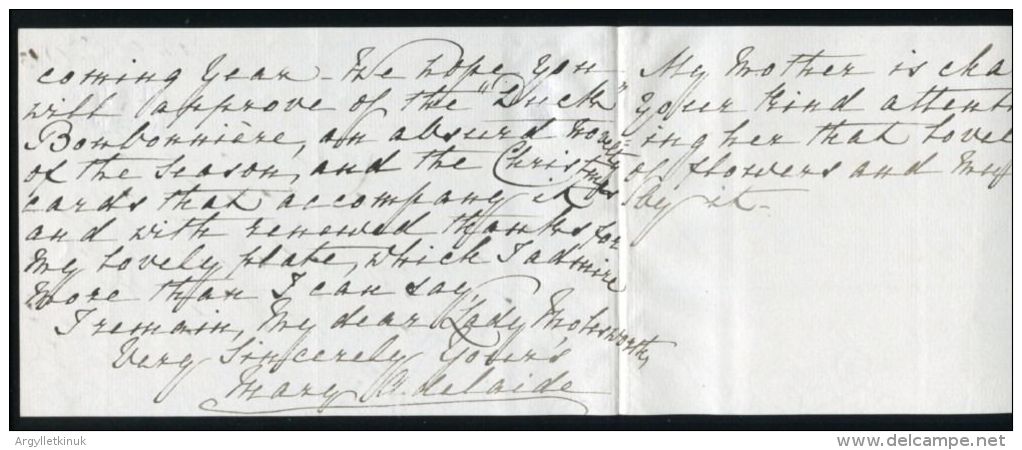 coming Year – We hope you
will approve of the "Duck"
Bonbonnière, an absurd novelty
of the season, and the Christmas
cards that accompany it
and with renewed thanks for
my lovely plate, which I admire
more than I can say,
I remain, My dear Lady Molesworth,
Very Sincerely Yours
Mary Adelaide
My Mother is cha
Your kind attenti
ing her that lovel
of flowers and
by it.
Argylletkinuk
www.delcampe.net